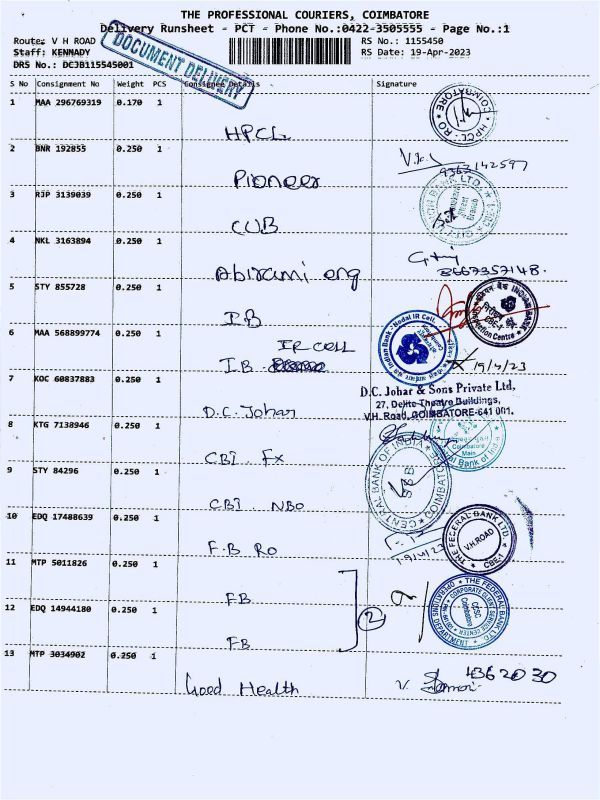 THE PROFESSIONAL COURIERS, COIMBATORE
Delivery Runsheet - PCT - Phone No.:0422-3505555 - Page No.:1
Route: V H ROAD
RS No.: 1155450
Staff: KENNADY
RS Date: 19-Apr-2023
DRS No.: DCJB115545001
DOCUMENT DELIVERY
S No Consignment No Weight PCS Consignee Details Signature
1 MAA 296769319 0.170 1
HPCL
COIMBATORE HPCL - RO
2 BNR 192855 0.250 1
Pioneer
9363142597
3 RJP 3139039 0.250 1
CUB
CITY UNION BANK LTD.
4 NKL 3163894 0.250 1
Abirami eng
8667357148.
5 STY 855728 0.250 1
I.B
INDIAN BANK
Inspection Centre
6 MAA 568899774 0.250 1
IR CELL
I.B.
Indian Bank - Nodal IR Cell
19/4/23
7 KOC 60837883 0.250 1
D.C. Johar
D.C. Johar & Sons Private Ltd,
27, Delite Theatre Buildings,
V.H. Road, COIMBATORE-641 001.
8 KTG 7138946 0.250 1
CBI. FX
Coimbatore
Main
9 STY 84296 0.250 1
CBI. NBO
CENTRAL BANK OF INDIA
COIMBATORE
10 EDQ 17488639 0.250 1
F.B RO
19/4/23
THE FEDERAL BANK LTD.
V.H. ROAD
CBE-1
11 MTP 5011826 0.250 1
FB
12 EDQ 14944180 0.250 1
FB
2
THE FEDERAL BANK LTD
OPERATIONS DEPARTMENT
CORPORATE CLIENT SERVICE CENTER
CCSC
Coimbatore
13 MTP 3034902 0.250 1
Good Health
V.